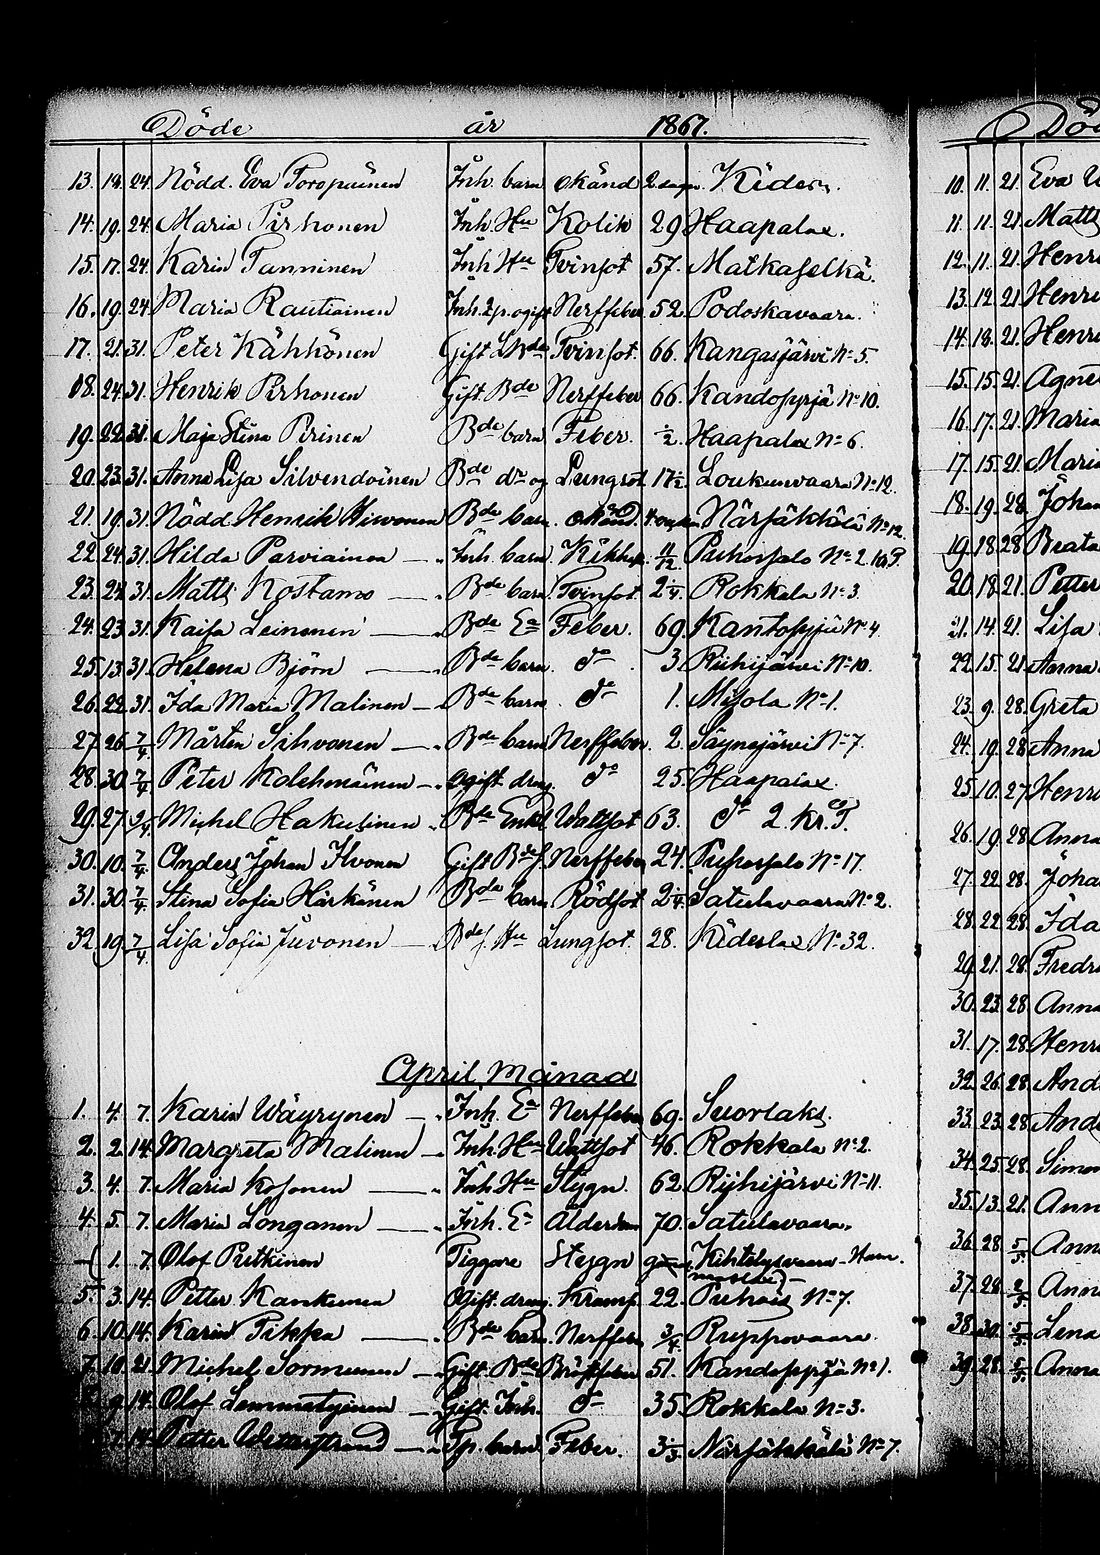 Döde år 1867.
13. 18. 24. Nödd. Eva Toropainen Inh. barn okänd 2 dagar Kides.
14. 19. 24. Maria Pirhonen Inh. Hu Kolik 29 Haapalax.
15. 17. 24. Karin Tanninen Inh Hu Tvinsot 57. Matkaselkä.
16. 19. 24. Maria Rautiainen Inh. ogift Nerffeber 52. Podoskavaara.
17. 21. 31. Peter Kähkönen Gift Bde Tvinsot. 66. Kangasjärvi No 5.
18. 24. 31. Henrik Pirhonen Gift. Bde Nerffeber 66. Kandosyrjä No 10.
19. 22. 31. Maja Stina Pirinen Bde barn Feber. 1/2. Haapalax No 6.
20. 23. 31. Anna Lisa Silvendoinen Bde dr og Lungsot 17 1/2. Loukunvaara No 12.
21. 19. 31. Nödd. Henrik Hirvonen Bde barn. okänd. Närsäkkälä No 12.
22. 24. 31. Hilda Parviainen — Inh. barn. Kikhos. 11/12 Puhossalo No 2.
23. 24. 31. Matts Kostamo — Bde barn Tvinsot. 2 1/4. Rokkala No 3.
24. 23. 31. Kaisa Leinonen — Bde Ea Feber. 69. Kantosyrjä No 4.
25. 13. 31. Helena Björn — Bde barn. do. 3. Riihijärvi No 10.
26. 22. 31. Ida Maria Malinen — Bde barn. do 1. Misola No 1.
27. 26. 7/4. Mårten Sihvonen — Bde barn Nerffeber. 2. Säynejärvi No 7.
28. 30. 7/4. Peter Kolehmainen — ogift dreng. do 25. Haapalax.
29. 27. 7/4. Michel Hakulinen Bde Enkl. Wattsot 63. do 2. kr. T.
30. 10. 7/4. Anders Johan Ilvonen Gift Bdes. Nerffeber 24. Puhossalo No 17.
31. 30. 7/4. Stina Sofia Härkönen Bde barn Rödsot 2 1/4. Satulavaara No 2.
32. 19. 7/4. Lisa Sofia Juvonen — Bdes. Hu Lungsot. 28. Kideslax No 32.
April Månad
1. 4. 7. Karin Wäyrynen — Inh. Ea Nerffeber 69. Suorlaks.
2. 2. 14. Margreta Malinen — Inh. Hu Wattsot 46. Rokkala No 2.
3. 4. 7. Maria Kosonen — Inh. Hu Stygn. 62. Riihijärvi No 11.
4. 5. 7. Maria Longanen — Inh. Ea Ålderdom 70. Satulavaara.
—( 1. 7. Olof Putkinen Tiggare Stygn Kihtelysvaara Ham-
marsko)—
5. 3. 14. Petter Kankunen Ogift. dreng. Kramp. 22. Puhois No 7.
6. 10. 14. Karin Tikka — Bde barn. Nerffeber 3/4. Ruppovaara.
7. 18. 21. Michel Sormunen — Gift. Bde Bröstfeber 51. Kandosyrjä No 1.
9. 14. Olof Lemmetyinen — Gift. Inh. do 35. Rokkala No 3.
7. 14. Petter Wetterstrand — Tp. barn. Feber. 3 1/3. Närsäkkälä No 7.
Döde
10. 11. 21. Eva
11. 11. 21. Matts
12. 11. 21. Henri
13. 12. 21. Henri
14. 18. 21. Henri
15. 15. 21. Agnes
16. 17. 21. Maria
17. 15. 21. Maria
18. 19. 28. Johan
19. 18. 28. Brata
20. 18. 21. Petter
21. 14. 21. Lisa
22. 15. 21. Anna
23. 9. 28. Greta
24. 19. 28. Anna
25. 10. 27. Henri
26. 19. 28. Anna
27. 22. 28. Joha
28. 22. 28. Ida
29. 21. 28. Fredri
30. 23. 28. Anna
31. 17. 28. Henri
32. 26. 28. And
33. 23. 28. Ande
34. 25. 28. Simon
35. 13. 21. Ann
36. 28. 5/5. Ann
37. 28. 5/5. Ann
38. 30. 5/5. Lena
39. 28. 5/5. Anna